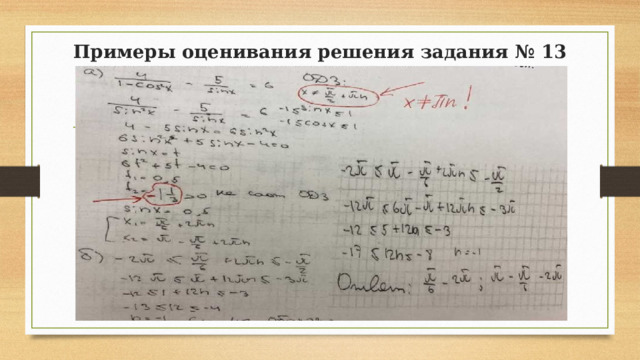 Примеры оценивания решения задания № 13
а) 4/(1-cos²x) - 5/sinx = 6 ОДЗ:
x ≠ π/2 + πn
x ≠ πn!
4/sin²x - 5/sinx = 6 -1≤sinx≤1
-1≤cosx≤1
4 - 5sinx = 6sin²x
6sin²x + 5sinx - 4 = 0
sinx = t
6t² + 5t - 4 = 0
t₁ = 0,5
t₂ = -1 1/3 => не соот ОДЗ
sinx = 0,5
x₁ = π/6 + 2πn
x₂ = π - π/6 + 2πn
б) -2π ≤ π/6 + 2πn ≤ -π/2
-12π ≤ π + 12πn ≤ -3π
-12 ≤ 1 + 12n ≤ -3
-13 ≤ 12 ≤ -4
n = -1
-2π ≤ π - π/6 + 2πn ≤ -π/2
-12π ≤ 6π - π + 12πn ≤ -3π
-12 ≤ 5 + 12n ≤ -3
-17 ≤ 12n ≤ -8 n = -1
Ответ: π/6 - 2π ; π - π/6 - 2π